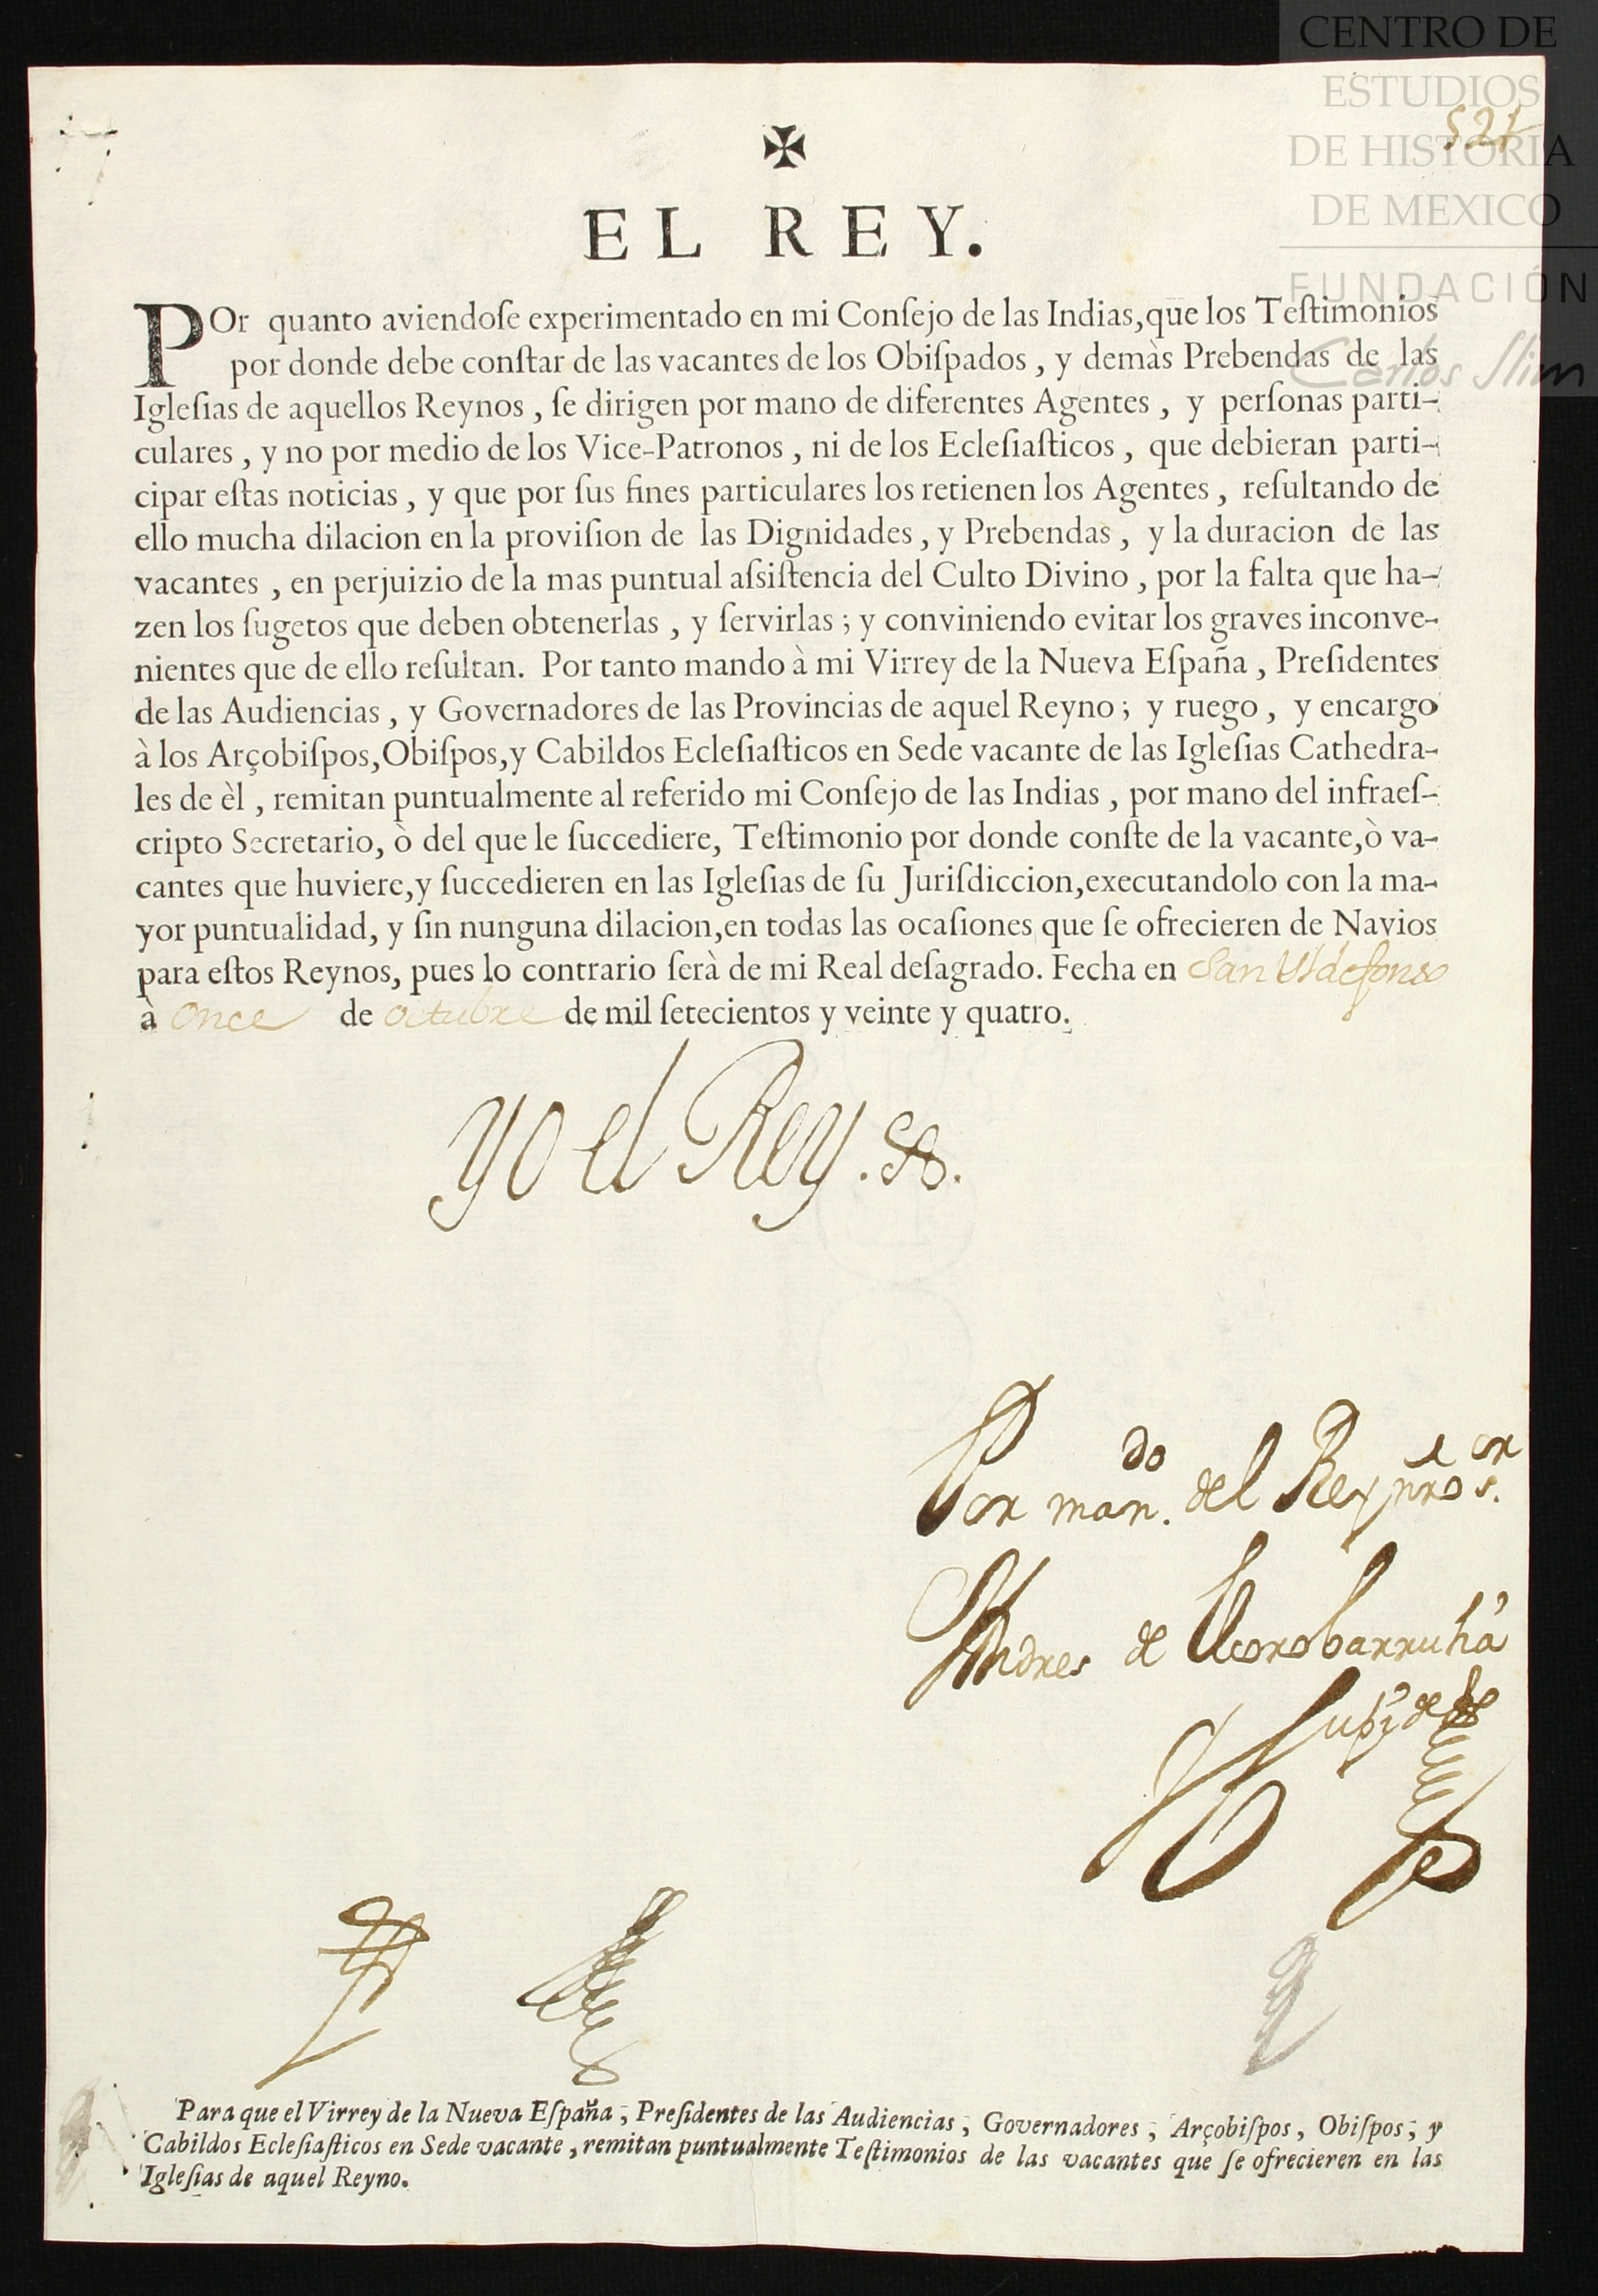 CENTRO DE
ESTUDIOS
DE HISTORIA
DE MEXICO
FUNDACIÓN
Carlos Slim
521
✠
EL REY.
POr quanto aviendoſe experimentado en mi Conſejo de las Indias,que los Teſtimonios
por donde debe conſtar de las vacantes de los Obiſpados , y demàs Prebendas de las
Igleſias de aquellos Reynos , ſe dirigen por mano de diferentes Agentes , y perſonas parti-
culares , y no por medio de los Vice-Patronos , ni de los Ecleſiaſticos , que debieran parti-
cipar eſtas noticias , y que por ſus fines particulares los retienen los Agentes , reſultando de
ello mucha dilacion en la proviſion de las Dignidades , y Prebendas , y la duracion de las
vacantes , en perjuizio de la mas puntual aſsiſtencia del Culto Divino , por la falta que ha-
zen los ſugetos que deben obtenerlas , y ſervirlas ; y conviniendo evitar los graves inconve-
nientes que de ello reſultan. Por tanto mando à mi Virrey de la Nueva Eſpaña , Preſidentes
de las Audiencias , y Governadores de las Provincias de aquel Reyno ; y ruego , y encargo
à los Arçobiſpos,Obiſpos,y Cabildos Ecleſiaſticos en Sede vacante de las Igleſias Cathedra-
les de èl , remitan puntualmente al referido mi Conſejo de las Indias , por mano del infraeſ-
cripto Secretario, ò del que le ſuccediere, Teſtimonio por donde conſte de la vacante,ò va-
cantes que huviere,y ſuccedieren en las Igleſias de ſu Juriſdiccion,executandolo con la ma-
yor puntualidad, y ſin nunguna dilacion,en todas las ocaſiones que ſe ofrecieren de Navios
para eſtos Reynos, pues lo contrario ſerà de mi Real deſagrado. Fecha en San Ildefonso
à Once de octubre de mil ſetecientos y veinte y quatro.
Yo el Rey.
Por man.do del Rey nro s.or
Andres de
Para que el Virrey de la Nueva Eſpaña , Preſidentes de las Audiencias , Governadores , Arçobiſpos , Obiſpos , y
Cabildos Ecleſiaſticos en Sede vacante , remitan puntualmente Teſtimonios de las vacantes que ſe ofrecieren en las
Igleſias de aquel Reyno.